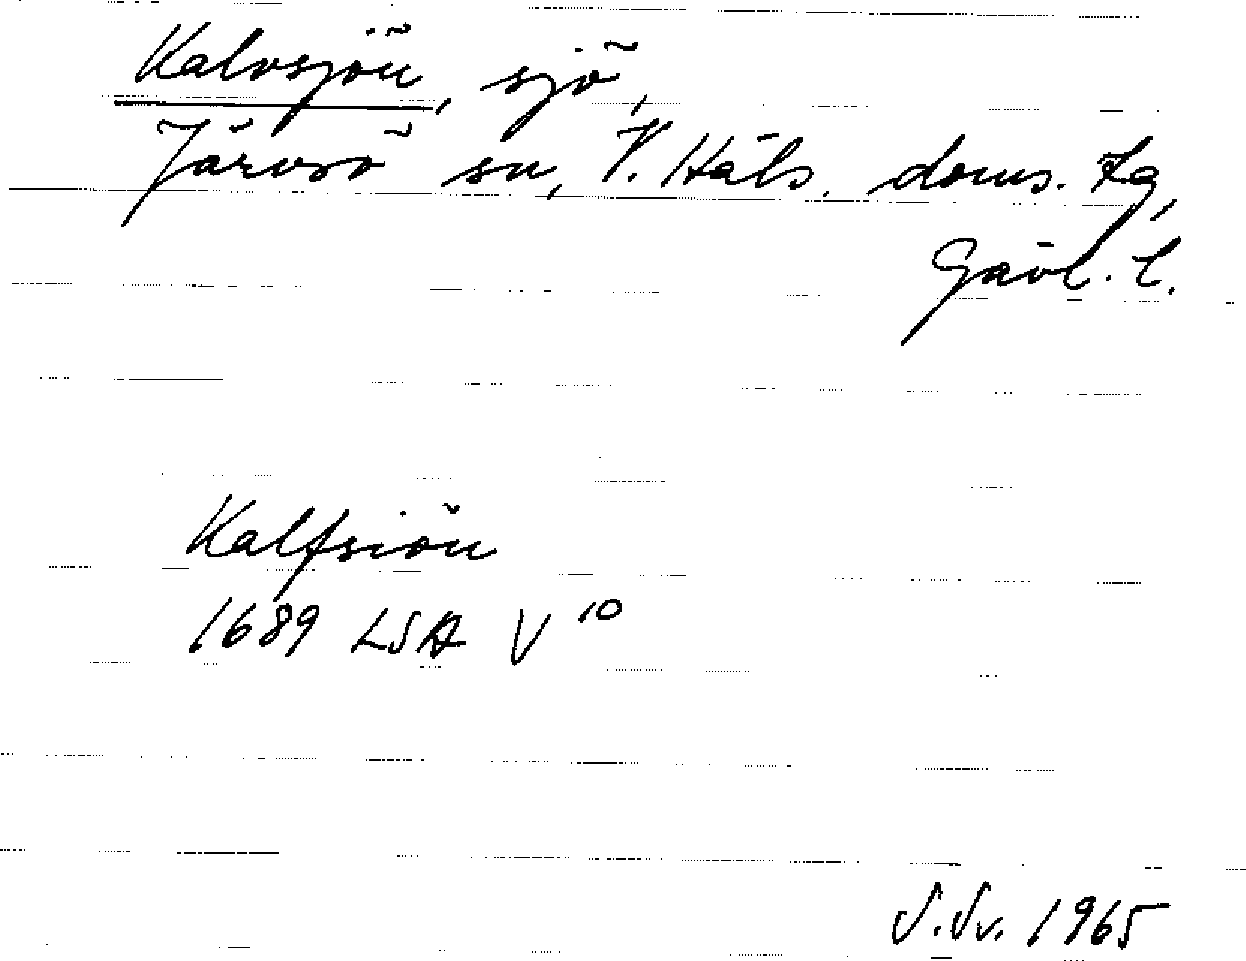 Kalvsjön, sjö,
Järvsö sn, V. Häls. doms. tg,
Gävl. l.
Kalfsiön
1689 LSA V 10
S. Sv. 1965